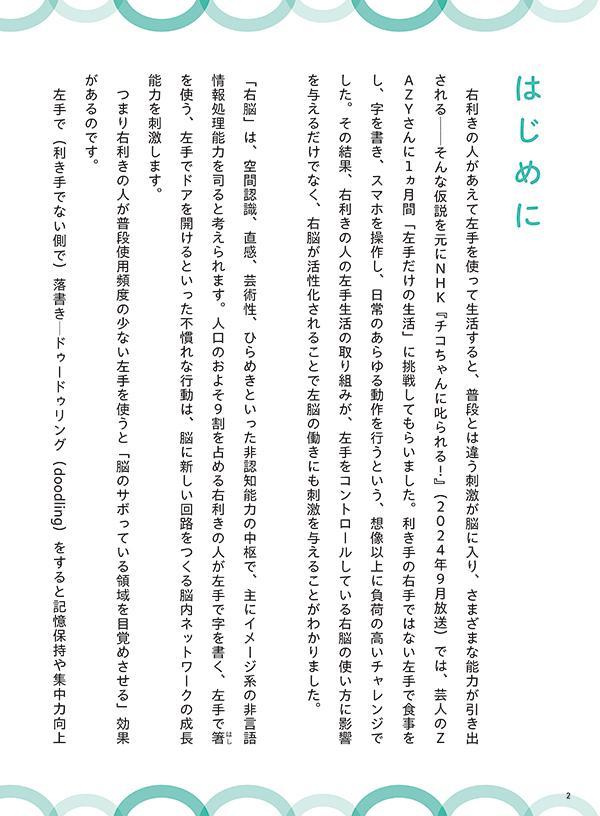 はじめに
右利きの人があえて左手を使って生活すると、普段とは違う刺激が脳に入り、さまざまな能力が引き出
される――そんな仮説を元にNHK『チコちゃんに叱られる！』（2024年9月放送）では、芸人のZ
AZYさんに1ヵ月間「左手だけの生活」に挑戦してもらいました。利き手の右手ではない左手で食事を
し、字を書き、スマホを操作し、日常のあらゆる動作を行うという、想像以上に負荷の高いチャレンジで
した。その結果、右利きの人の左手生活の取り組みが、左手をコントロールしている右脳の使い方に影響
を与えるだけでなく、右脳が活性化されることで左脳の働きにも刺激を与えることがわかりました。
「右脳」は、空間認識、直感、芸術性、ひらめきといった非認知能力の中枢で、主にイメージ系の非言語
情報処理能力を司ると考えられます。人口のおよそ9割を占める右利きの人が左手で字を書く、左手で箸
はし
を使う、左手でドアを開けるといった不慣れな行動は、脳に新しい回路をつくる脳内ネットワークの成長
能力を刺激します。
つまり右利きの人が普段使用頻度の少ない左手を使うと「脳のサボっている領域を目覚めさせる」効果
があるのです。
左手で（利き手でない側で）落書き―ドゥードゥリング（doodling）をすると記憶保持や集中力向上
2